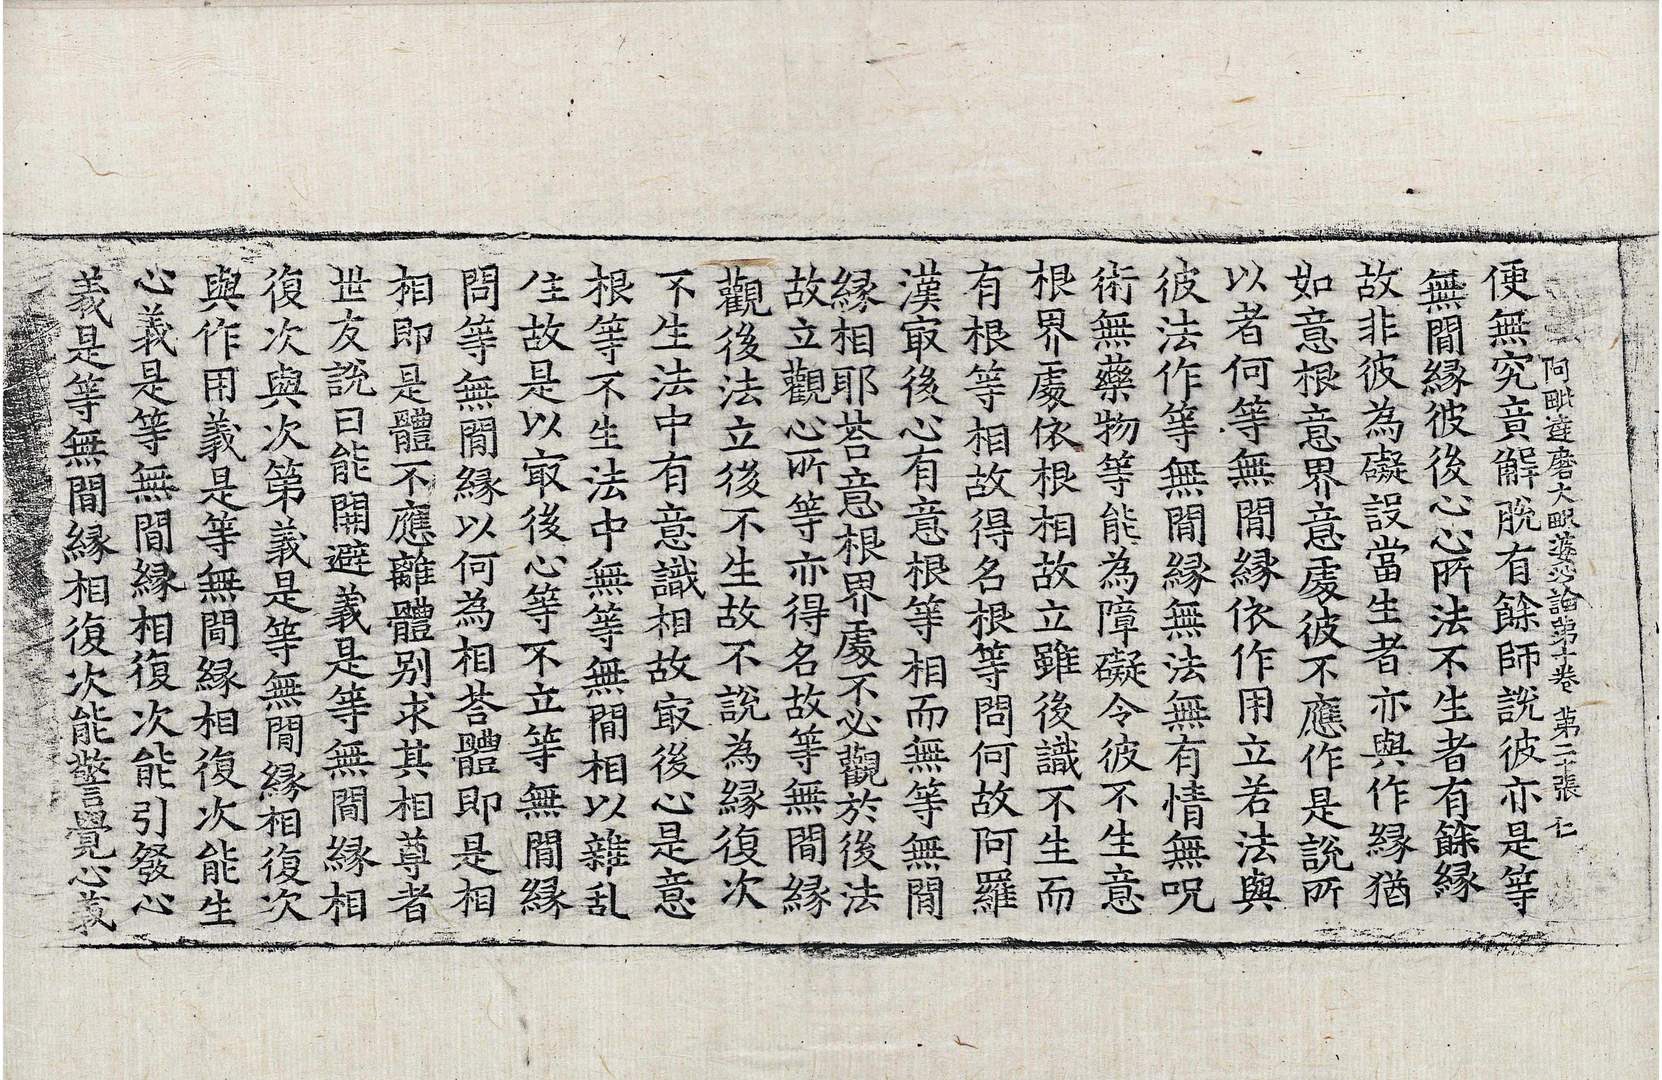 阿毗達磨大毗婆沙論第十卷 第二十張 仁
便無究竟解脫有餘師說彼亦是等
無間緣彼後心心所法不生者有餘緣
故非彼為礙設當生者亦與作緣猶
如意根意界意處彼不應作是說所
以者何等無間緣依作用立若法與
彼法作等無間緣無法無有情無呪
術無藥物等能為障礙令彼不生意
根界處依根相故立雖後識不生而
有根等相故得名根等問何故阿羅
漢㝡後心有意根等相而無等無間
緣相耶荅意根界處不必觀於後法
故立觀心所等亦得名故等無間緣
觀後法立後不生故不說為緣復次
不生法中有意識相故㝡後心是意
根等不生法中無等無間相以雜乱
住故是以㝡後心等不立等無間緣
問等無間緣以何為相荅體即是相
相即是體不應離體別求其相尊者
世友說曰能開避義是等無間緣相
復次與次第義是等無間緣相復次
與作用義是等無間緣相復次能生
心義是等無間緣相復次能引發心
義是等無間緣相復次能警覺心義